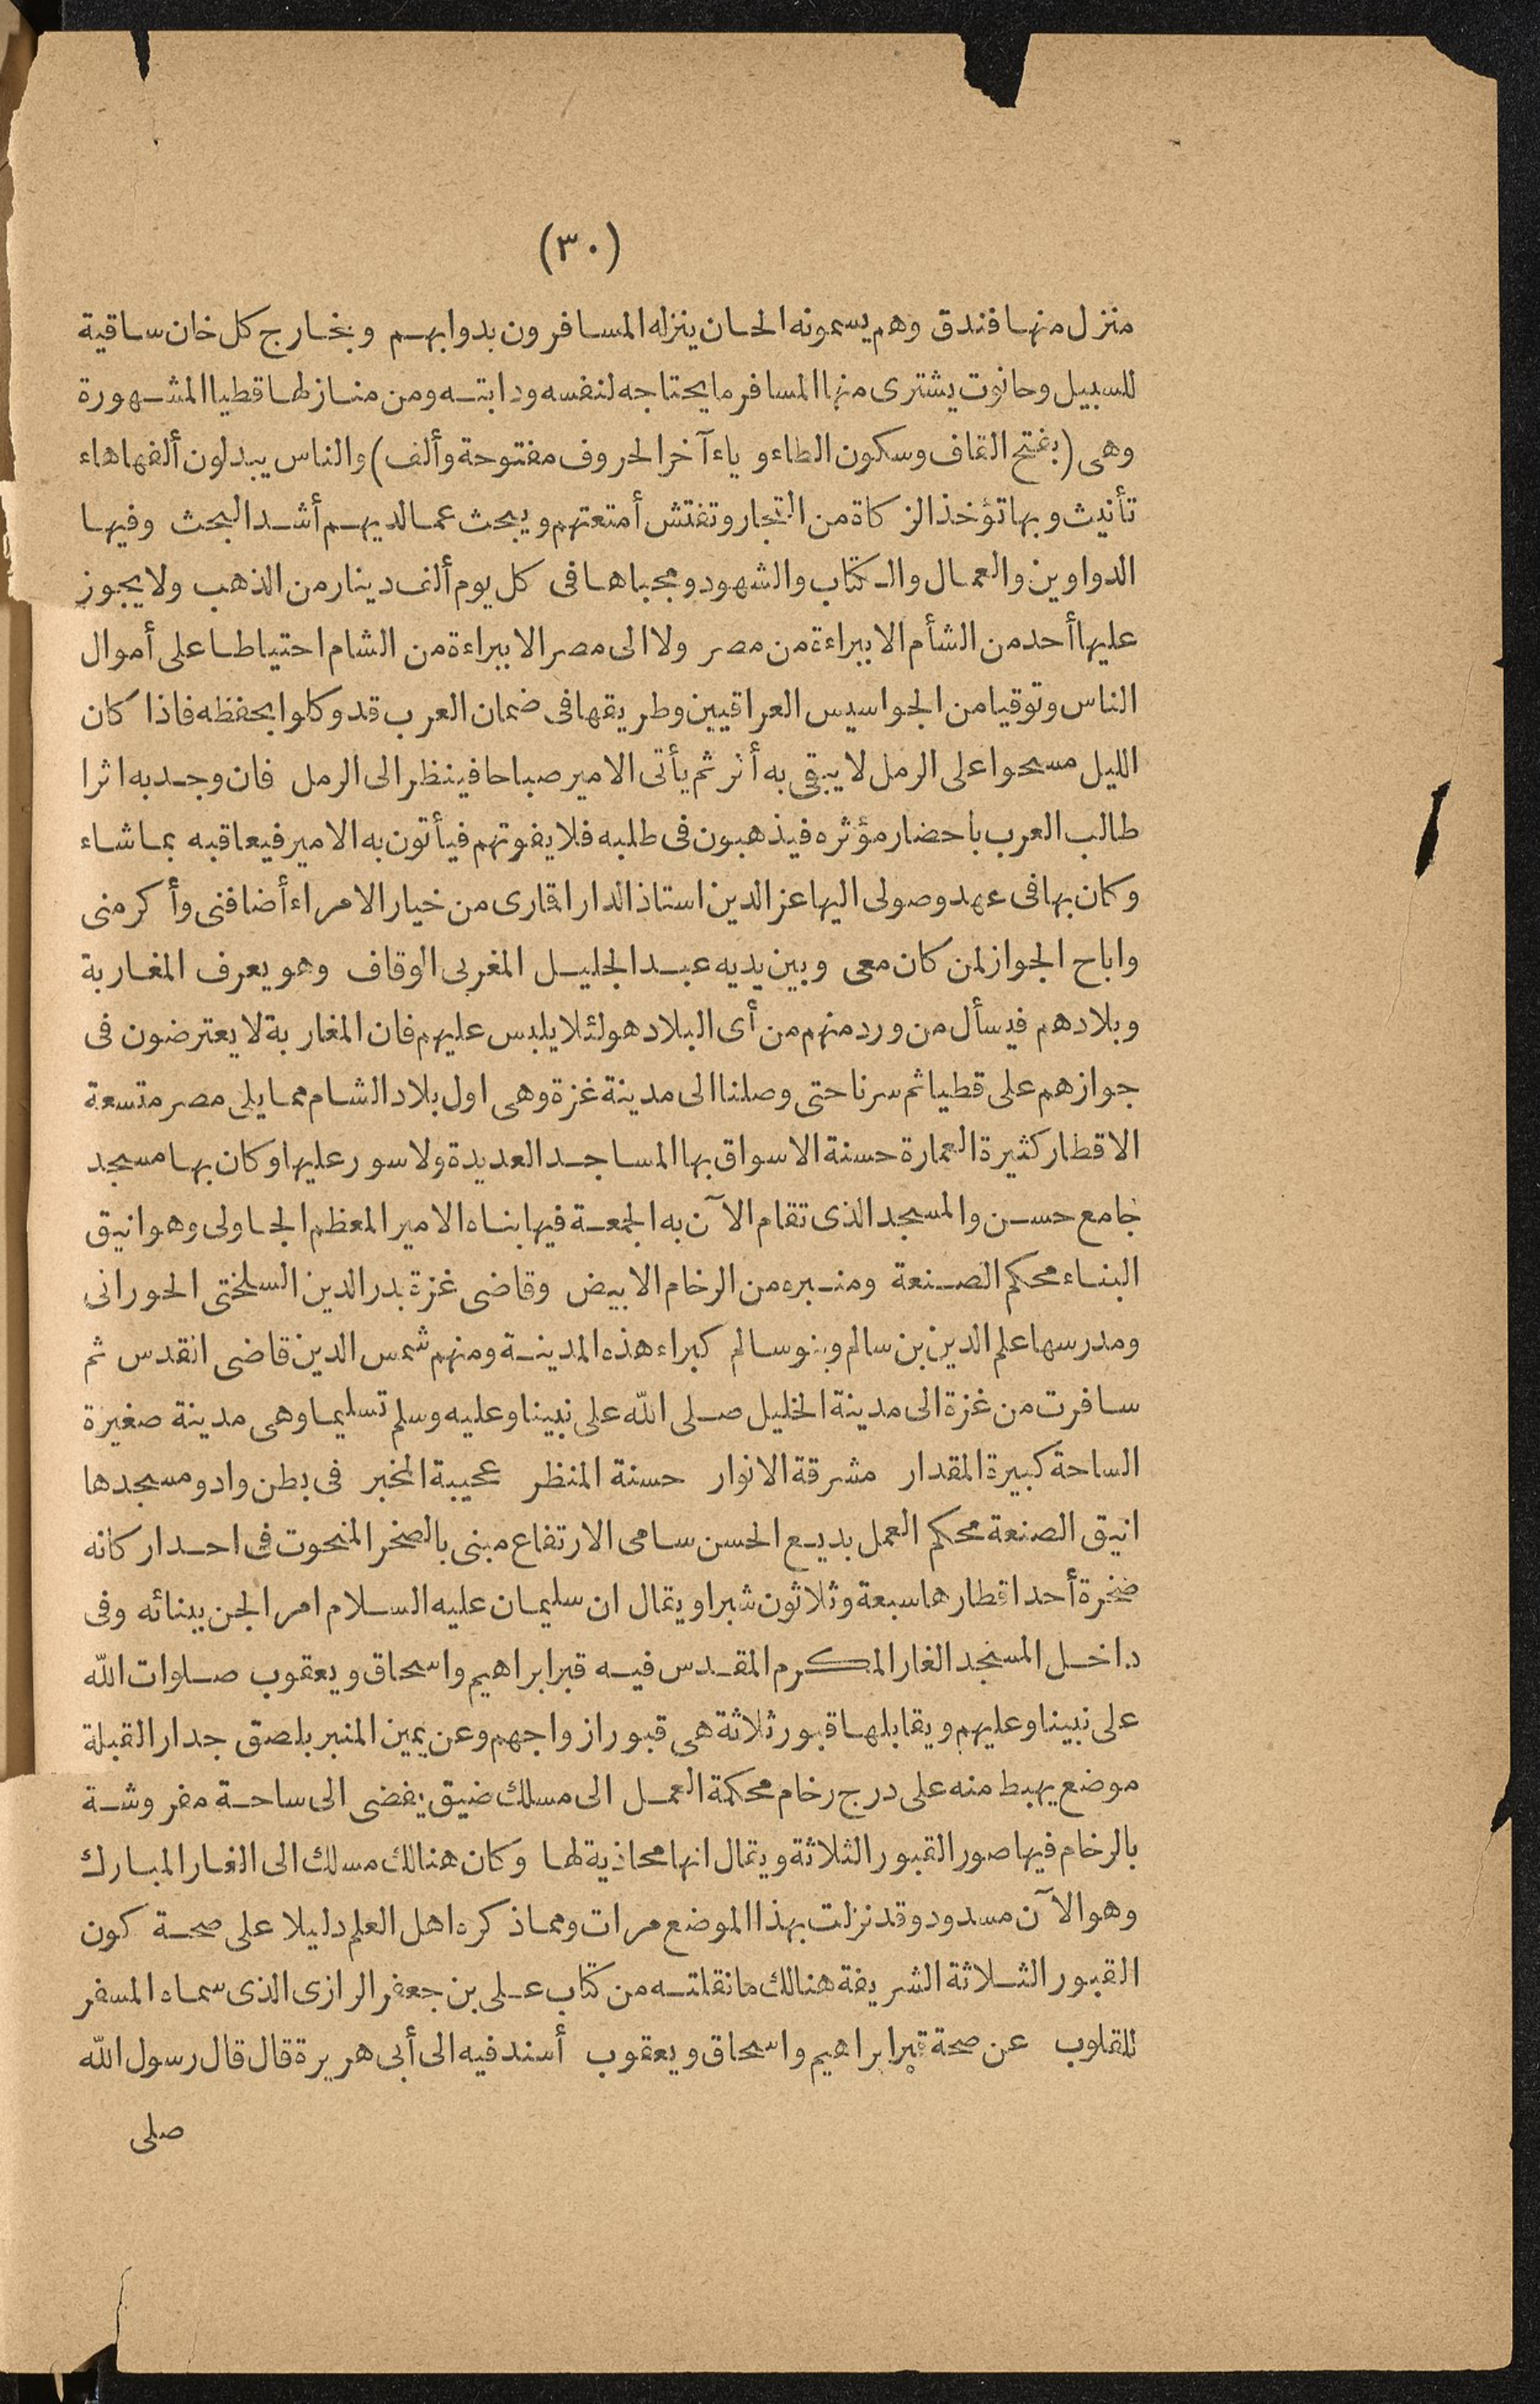 (٣٠)
منزل منها فندق وهم يسمونه الخان ينزله المسافرون بدوابهم وبخارج كل خان ساقية
للسبيل وحانوت يشترى منها المسافر ما يحتاجه لنفسه ودابته ومن منازلها قطيا المشهورة
وهى (بفتح القاف وسكون الطاء وياء آخر الحروف مفتوحة وألف) والناس يبدلون ألفها هاء
تأنيث وبها تؤخذ الزكاة من التجار وتفتش أمتعتهم ويبحث عما لديهم أشد البحث وفيها
الدواوين والعمال والكتاب والشهود ومجباها فى كل يوم ألف دينار من الذهب ولا يجوز
عليها أحد من الشأم الا ببراءة من مصر ولا الى مصر الا ببراءة من الشام احتياطا على أموال
الناس وتوقيا من الجواسيس العراقيين وطريقها فى ضمان العرب قد وكلوا بحفظه فاذا كان
الليل مسحوا على الرمل لا يبقى به أثر ثم يأتى الامير صباحا فينظر الى الرمل فان وجد به اثرا
طالب العرب باحضار مؤثره فيذهبون فى طلبه فلا يفوتهم فيأتون به الامير فيعاقبه بما شاء
وكان بها فى عهد وصولى اليها عز الدين استاذ الدار اقمارى من خيار الامراء أضافنى وأكرمنى
واباح الجواز لمن كان معى وبين يديه عبد الجليل المغربى الوقاف وهو يعرف المغاربة
وبلادهم فيسأل من ورد منهم من أى البلاد هو لئلا يلبس عليهم فان المغاربة لا يعترضون فى
جوازهم على قطيا ثم سرنا حتى وصلنا الى مدينة غزة وهى اول بلاد الشام مما يلى مصر متسعة
الاقطار كثيرة العمارة حسنة الاسواق بها المساجد العديدة ولا سور عليها وكان بها مسجد
جامع حسن والمسجد الذى تقام الآن به الجمعة فيها بناه الامير المعظم الجاولى وهو انيق
البناء محكم الصنعة ومنبره من الرخام الابيض وقاضى غزة بدر الدين السلختى الحورانى
ومدرسها علم الدين بن سالم وبنو سالم كبراء هذه المدينة ومنهم شمس الدين قاضى القدس ثم
سافرت من غزة الى مدينة الخليل صلى الله على نبينا وعليه وسلم تسليما وهى مدينة صغيرة
الساحة كبيرة المقدار مشرقة الانوار حسنة المنظر عجيبة المخبر فى بطن واد ومسجدها
انيق الصنعة محكم العمل بديع الحسن سامى الارتفاع مبنى بالصخر المنحوت فى احد اركانه
صخرة أحد اقطارها سبعة وثلاثون شبرا ويقال ان سليمان عليه السلام امر الجن ببنائه وفى
داخل المسجد الغار المكرم المقدس فيه قبر ابراهيم واسحاق ويعقوب صلوات الله
على نبينا وعليهم ويقابلها قبور ثلاثة هى قبور ازواجهم وعن يمين المنبر بلصق جدار القبلة
موضع يهبط منه على درج رخام محكمة العمل الى مسلك ضيق يفضى الى ساحة مفروشة
بالرخام فيها صور القبور الثلاثة ويقال انها محاذية لها وكان هنالك مسلك الى الغار المبارك
وهو الآن مسدود وقد نزلت بهذا الموضع مرات ومما ذكره اهل العلم دليلا على صحة كون
القبور الثلاثة الشريفة هنالك ما نقلته من كتاب على بن جعفر الرازى الذى سماه المسفر
للقلوب عن صحة قبر ابراهيم واسحاق ويعقوب أسند فيه الى أبى هريرة قال قال رسول الله
صلى